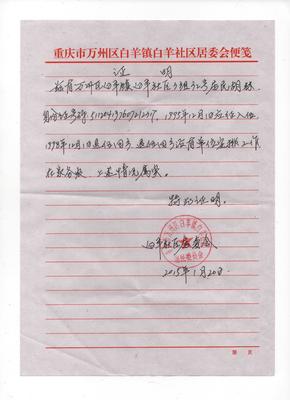 重庆市万州区白羊镇白羊社区居委会便笺
证明
兹有万州区白羊镇白羊社区5组32号居民胡林
身份证号码
1995年12月1日应征入伍
1998年12月1日退伍回乡，退伍回乡没有单位安排工作
在家务农，上述情况属实。
特此证明。
白羊社区居委会
2015年1月20日
第 页